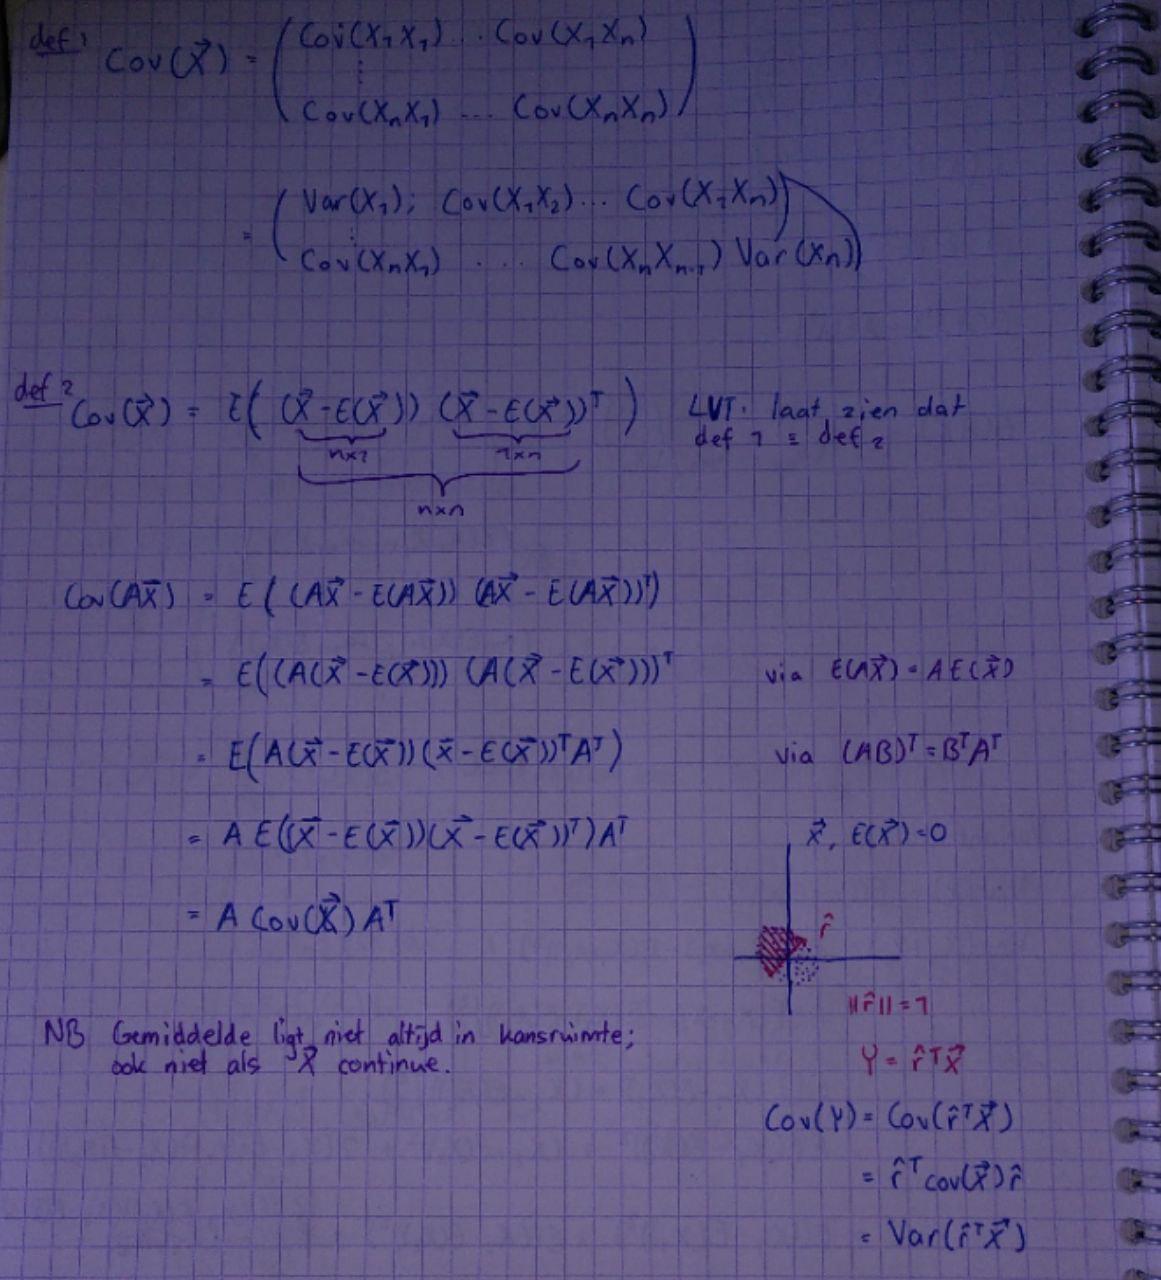 def 1 Cov(X⃗) = ( Cov(X₁X₁) .. Cov(X₁Xn)
⋮
Cov(XnX₁) ... Cov(XnXn) )
= ( Var(X₁); Cov(X₁X₂) ... Cov(X₁Xn)
⋮
Cov(XnX₁) ... Cov(XnXn-1) Var(Xn) )
def 2 Cov(X⃗) = E( (X⃗ - E(X⃗)) (X⃗ - E(X⃗))ᵀ ) LVT. laat zien dat
def 1 = def 2
n×1 1×n
n×n
Cov(AX⃗) = E( (AX⃗ - E(AX⃗)) (AX⃗ - E(AX⃗))ᵀ)
= E((A(X⃗ - E(X⃗))) (A(X⃗ - E(X⃗)))ᵀ via E(AX⃗) = A E(X⃗)
= E(A(X⃗ - E(X⃗))(X⃗ - E(X⃗))ᵀAᵀ) via (AB)ᵀ = BᵀAᵀ
= A E((X⃗ - E(X⃗))(X⃗ - E(X⃗))ᵀ)Aᵀ
X⃗, E(X⃗) = 0
= A Cov(X⃗) Aᵀ
r̂
||r̂|| = 1
NB Gemiddelde ligt niet altijd in kansruimte;
ook niet als X⃗ continue.
Y = r̂ᵀX⃗
Cov(Y) = Cov(r̂ᵀX⃗)
= r̂ᵀcov(X⃗)r̂
= Var(r̂ᵀX⃗)